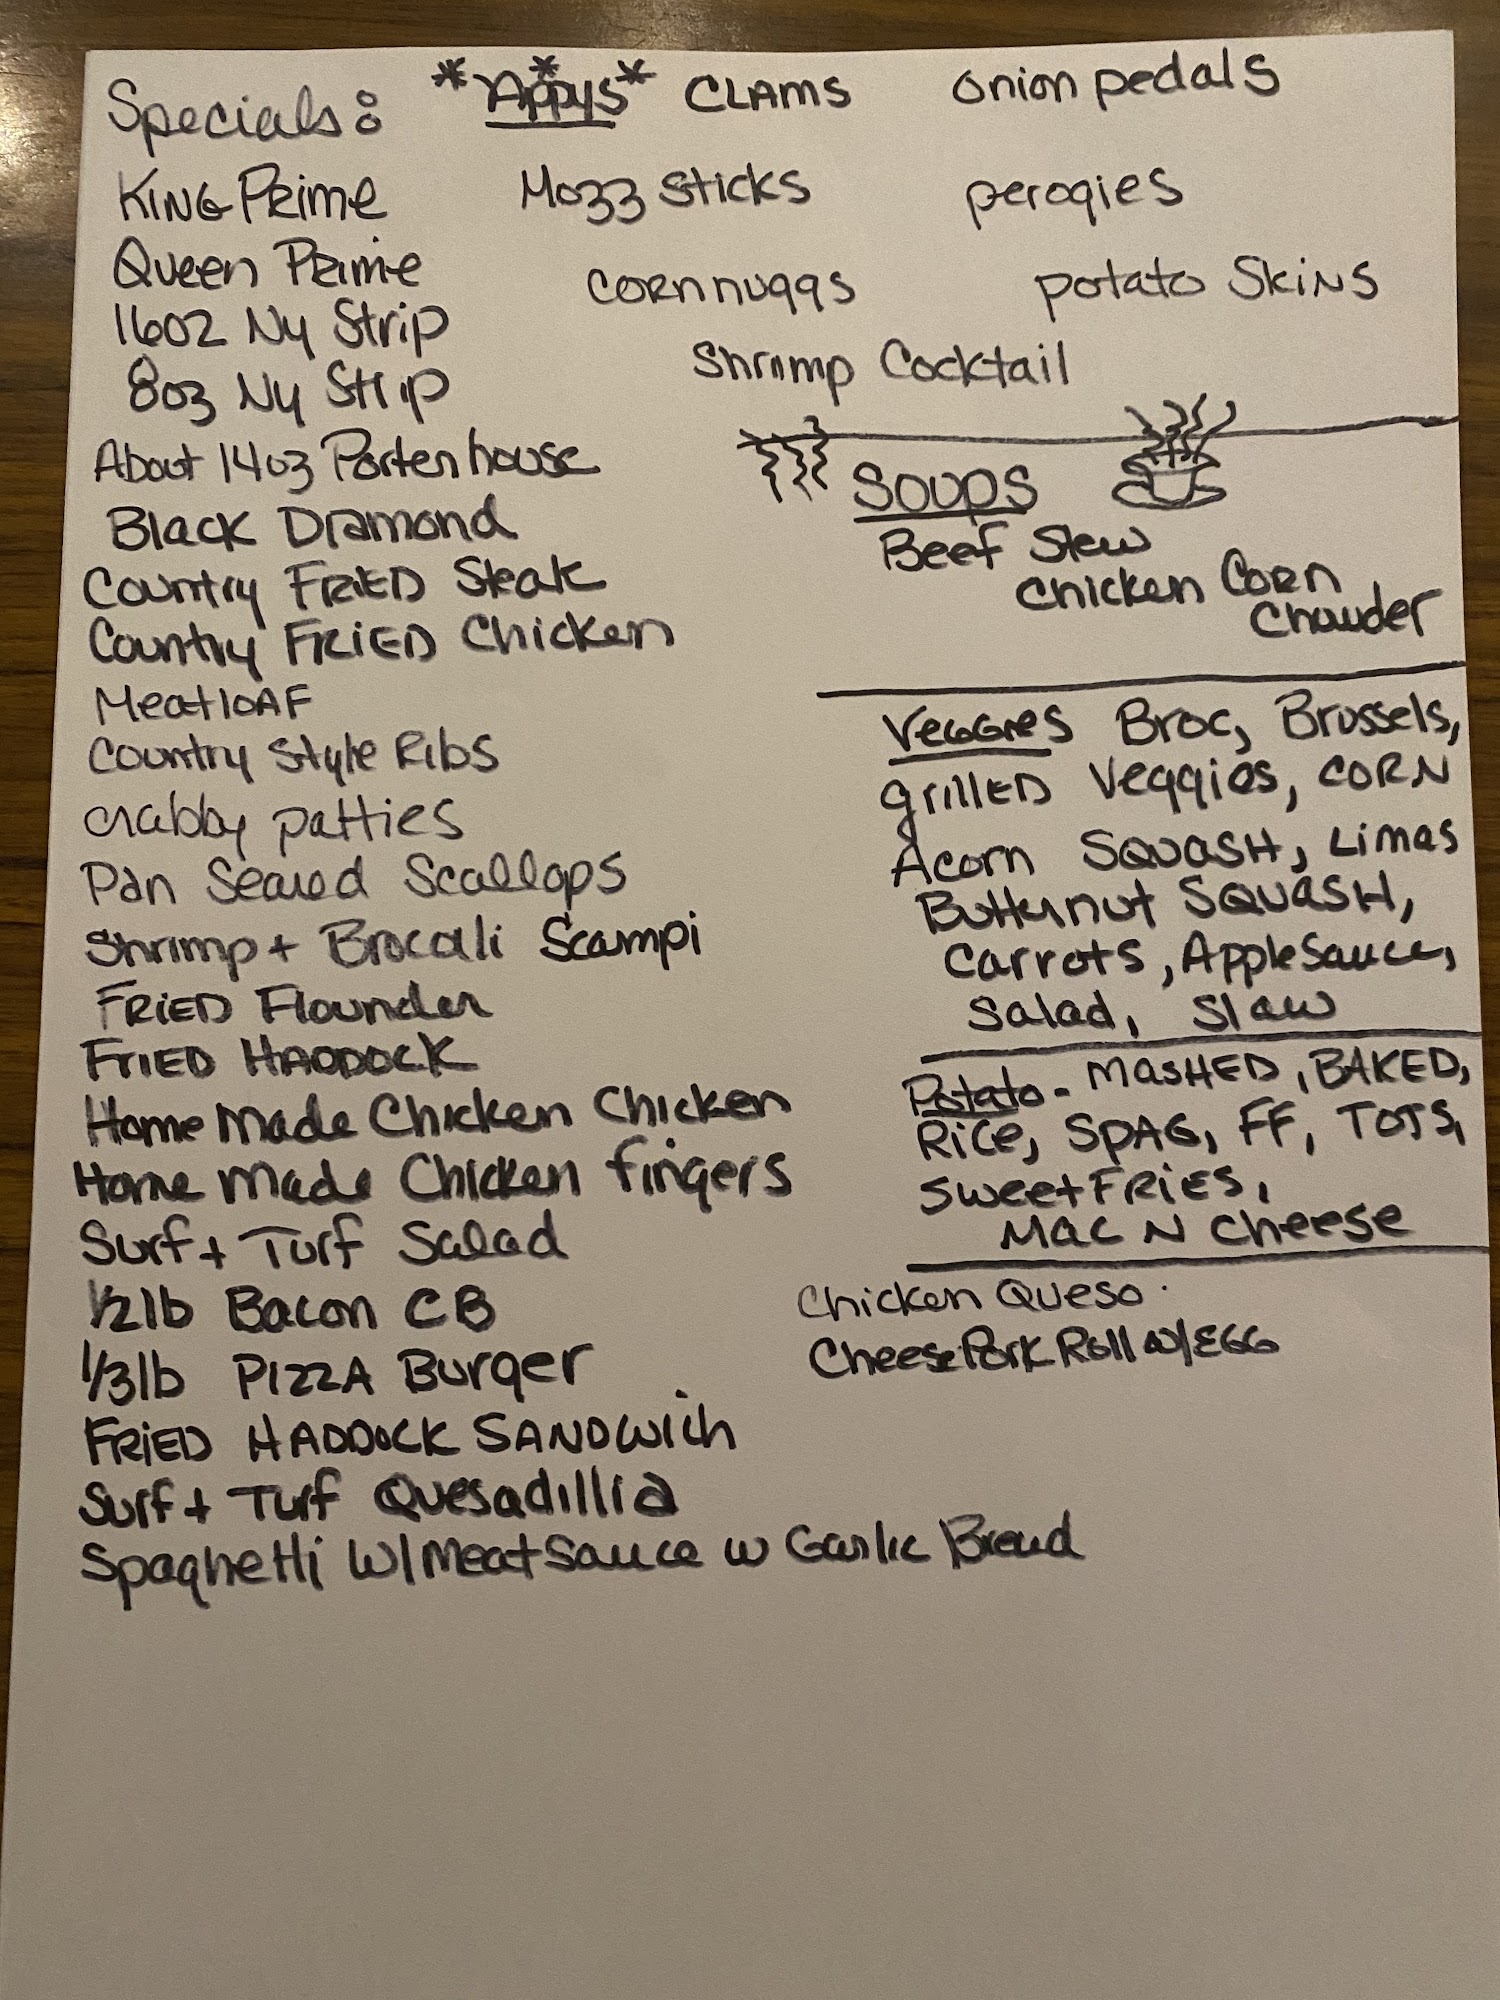 Specials:
KING Prime
Queen Prime
16oz Ny Strip
8oz Ny Strip
About 14oz Portenhouse
Black Diamond
Country FRIED Steak
Country FRIED Chicken
MeatlOAF
Country Style Ribs
crabby patties
Pan Seared Scallops
Shrimp + Brocolli Scampi
FRIED Flounder
FRIED HADDOCK
Home Made Chicken Chicken
Home Made Chicken fingers
Surf + Turf Salad
1/2 lb Bacon CB
1/3 lb PIZZA Burger
FRIED HADDOCK SANDWich
Surf + Turf Quesadillia
Spaghetti W/ Meat Sauce w Garlic Bread
*Appys* CLAMS onion pedals
Mozz Sticks perogies
CORN nuggs potato Skins
Shrimp Cocktail
Soups
Beef Stew
Chicken Corn
Chowder
Veggies Broc, Brussels,
grillED Veggies, CORN
Acorn SQUASH, Limas
Butternut SQUASH,
Carrots, AppleSauce,
Salad, Slaw
Potato - MASHED, BAKED,
Rice, SPAG, FF, TOTS,
Sweet FRIES,
Mac N Cheese
Chicken Queso
Cheese Pork Roll w/ EGG